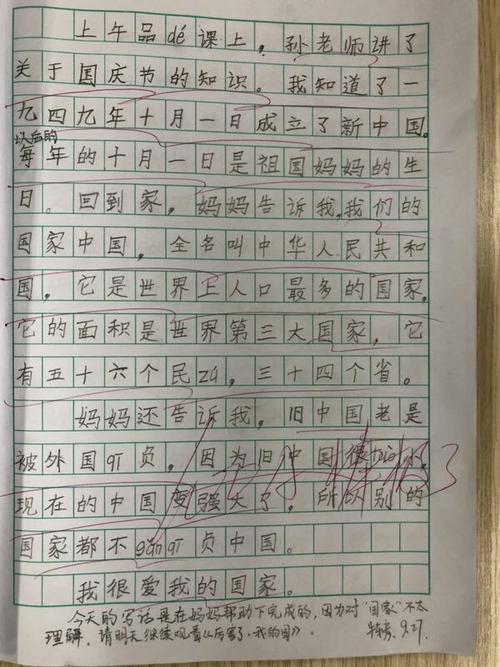 上午品dé课上，孙老师讲了
关于国庆节的知识。我知道了一
九四九年十月一日成立了新中国。
以后的
每年的十月一日是祖国妈妈的生
日。回到家，妈妈告诉我，我们的
国家中国，全名叫中华人民共和
国，它是世界上人口最多的国家，
它的面积是世界第三大国家，它
有五十六个民zú，三十四个省。
妈妈还告诉我，旧中国老是
被外国qī负，因为旧中国很
现在的中国变强大了，所以别的
国家都不gǎn qī负中国。
我很爱我的国家。
今天的写话是在妈妈帮助下完成的，因为对“国家”不太
理解，请明天继续观看《厉害了，我的国》。
9.27